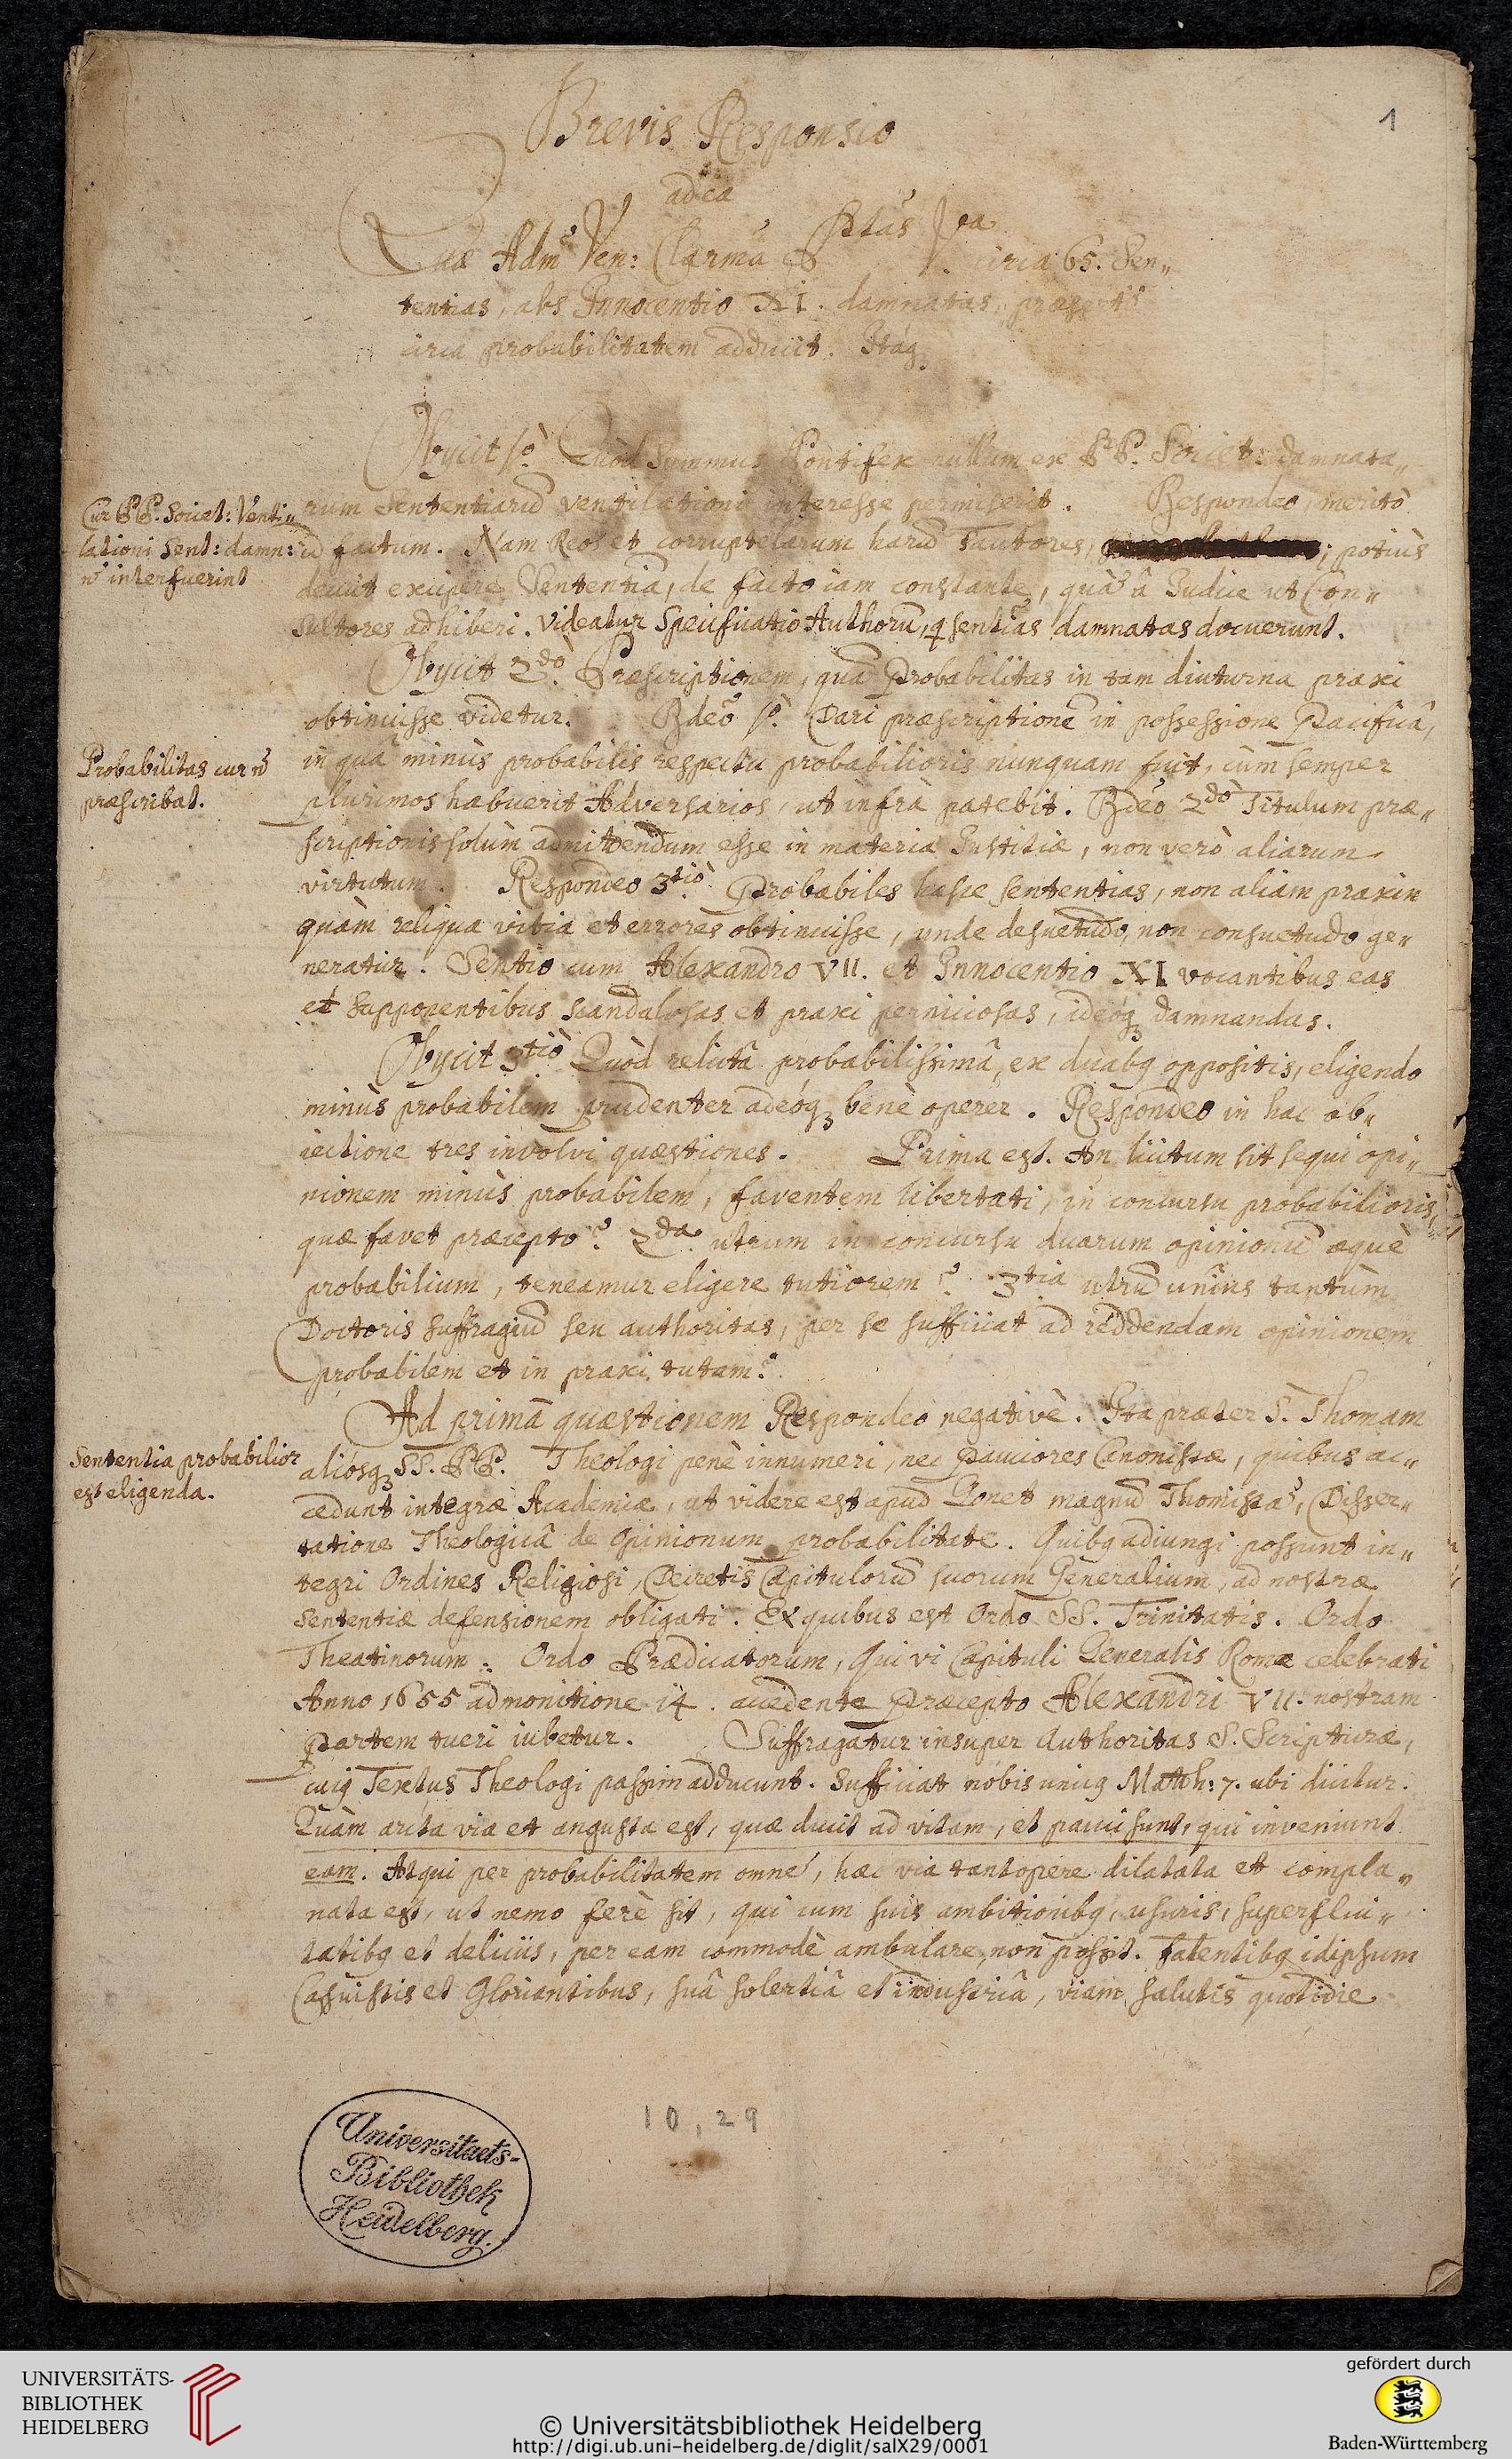 1
Brevis Responsio
ad ea
Quæ Adm Ven: Clarma Ptas Vra
circa 65. Sen„
tentias, abs Innocentio XI. damnatas, præsertī
circa probabilitatem adducit. Itáq;
Obijcit 1º Quòd Summus Pontifex nullum ex PP. Societ: damnata„
rum Sententiarũ ventilationi interesse permiserit. Respondeo, meritò
id factum. Nam Reos et corruptelarum harũ fautores, ; potiùs
decuit excipere Sententiã, de facto iam constante, quã â Iudice ut Con„
sultores adhiberi. Videatur Specificatio Authorũ, q sentias damnatas docuerunt.
Cur PP. Societ: Venti„
lationi Sent: damn:
nõ interfuerint
Obijcit 2dò Præscriptionem, quã Probabilitas in tam diuturna praxi
obtinuisse videtur. Rdeõ 1º. Dari præscriptionẽ in possessione Pacificâ,
in quâ minùs probabilis respectu probabilioris nunquam fuit, cùm semper
plurimos habuerit Adversarios, ut infrà patebit. Rdeõ 2dò Titulum præ„
scriptionis solùm admittendum esse in materia Iustitiæ, non verò aliarum
virtutum. Respondeo 3tiò Probabiles hasce sententias, non aliam praxin
quàm reliqua vitia et errores obtinuisse, unde desuetudo, non consuetudo ge„
neratur. Sentio cum Alexandro VII. et Innocentio XI vocantibus eas
et supponentibus scandalosas et praxi perniciosas, ideóq; damnandas.
Probabilitas cur nõ
præscribat.
Obijcit 3tiò Quòd relictâ probabilissimâ, ex duabq oppositis, eligendo
minùs probabilem prudenter adeóq; benè operer. Respondeo in hac ob„
iectione tres involvi quæstiones. Prima est. An licitum sit sequi opi„
nionem minùs probabilem, faventem libertati, in concursu probabilioris,
quæ favet præcepto? 2da. utrum in concursu duarum opinionũ æquè
probabilium, teneamur eligere tutiorem? 3tia utrũ unius tantùm
Doctoris suffragiũ seu authoritas, per se sufficiat ad reddendam opinionem
probabilem et in praxi tutam?
Ad primã quæstionem Respondeo negativè. Ita præter S. Thomam
aliosq; SS. PP. Theologi penè innumeri, nec Pauciores Canonistæ, quibus ac„
cedunt integræ Academiæ, ut videre est apud Gonet magnũ Thomistã, Disser„
tatione Theologicâ de Opinionum probabilitate. Quibq adiungi possunt in„
tegri Ordines Religiosi, Decretis Capitulorũ suorum Generalium, ad nostræ
sententiæ defensionem obligati. Ex quibus est Ordo SS. Trinitatis. Ordo
Theatinorum. Ordo Prædicatorum, Qui vi Capituli Generalis Romæ celebrati
Anno 1655 admonitione 14. accedente Præcepto Alexandri VII. nostram
Partem tueri iubetur. Suffragatur insuper Authoritas S. Scripturæ,
cuiq Textus Theologi passim adducunt. Sufficiat nobis unicq Matth: 7. ubi dicitur.
Quàm arcta via et angusta est, quæ ducit ad vitam, et pauci sunt, qui inveniunt
eam. Atqui per probabilitatem omnẽ, hæc via tantopere dilatata et compla„
nata est, ut nemo ferè sit, qui cum suis ambitionibq, usuris, superflui„
tatibq et deliciis, per eam commodè ambulare, non possit. Fatentibq idipsum
Casuistis et Gloriantibus, suâ solertiâ et industriâ, viam salutis quotidie
Sententia probabilior
est eligenda.
10, 29
Universitaets-
Bibliothek
Heidelberg.
UNIVERSITÄTS-
BIBLIOTHEK
HEIDELBERG
© Universitätsbibliothek Heidelberg
http://digi.ub.uni-heidelberg.de/diglit/salX29/0001
gefördert durch
Baden-Württemberg